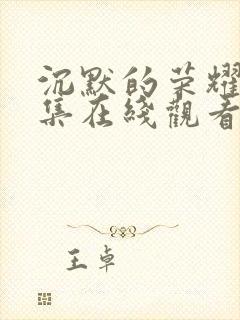 沉默的荣耀
集在綫觀看
王卓